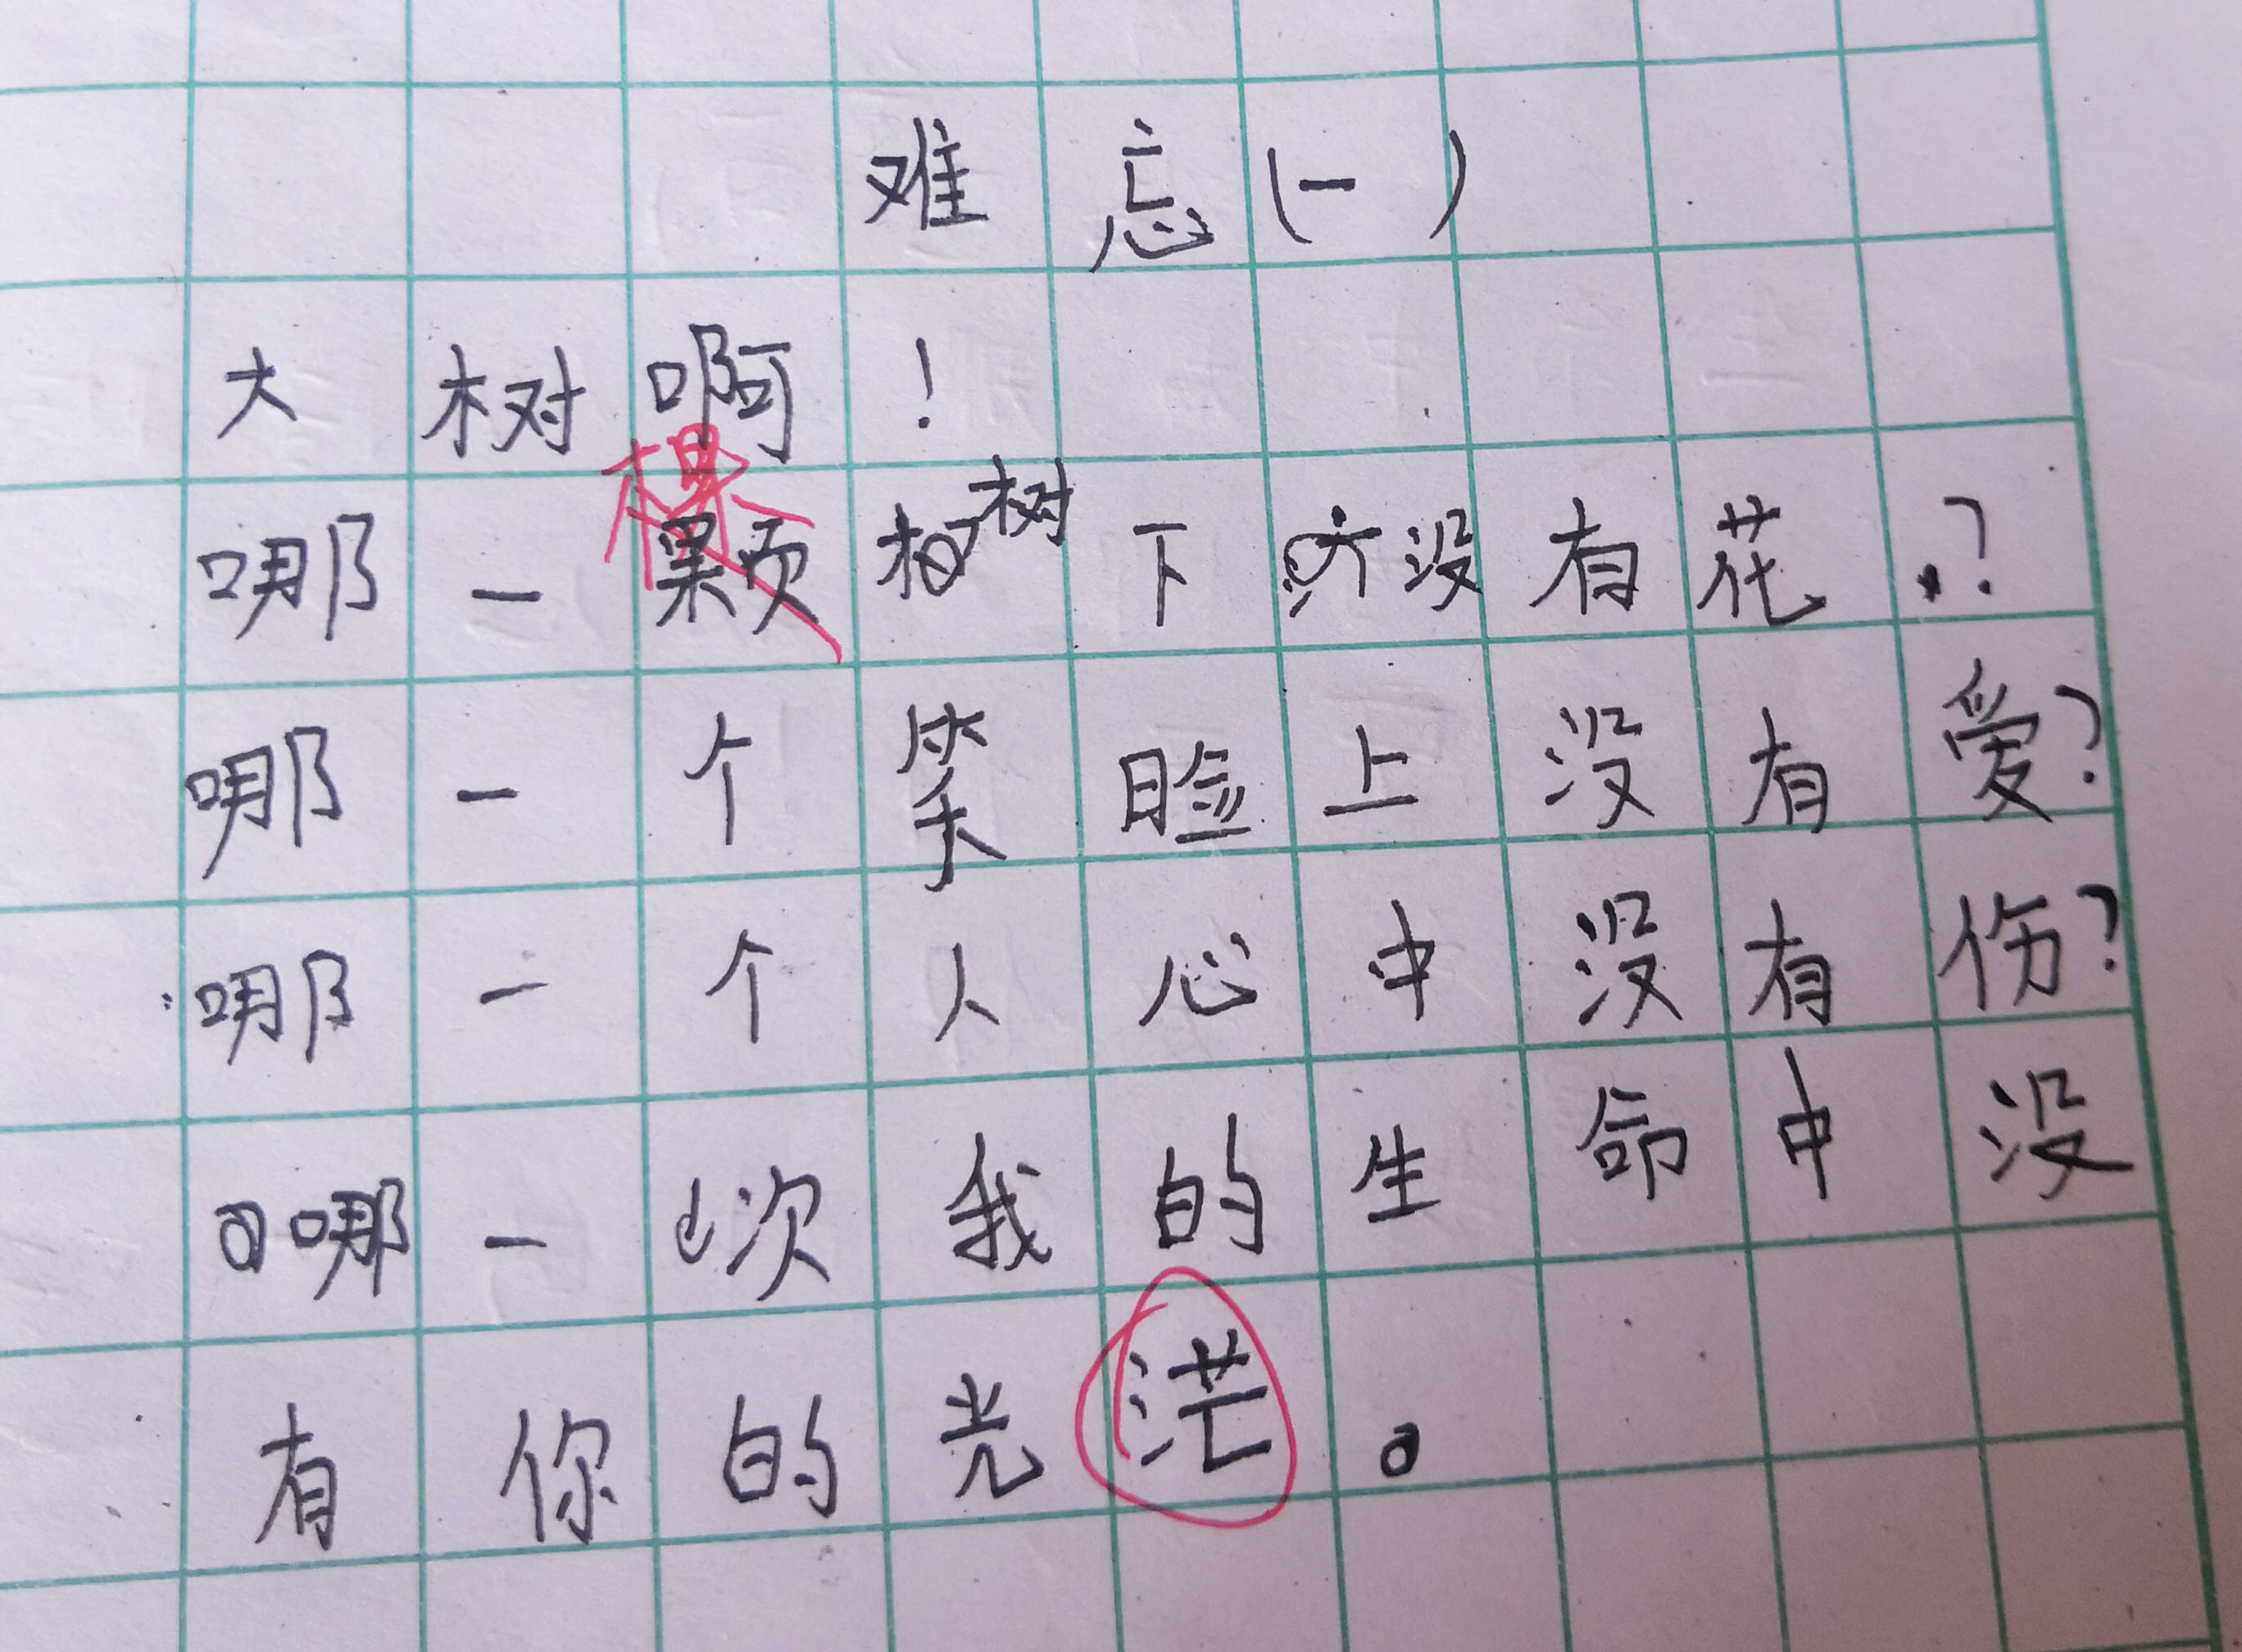 难忘(一)
大树啊!
哪一棵树下没有花?
哪一个笑脸上没有爱?
哪一个人心中没有伤?
哪一次我的生命中没
有你的光茫。